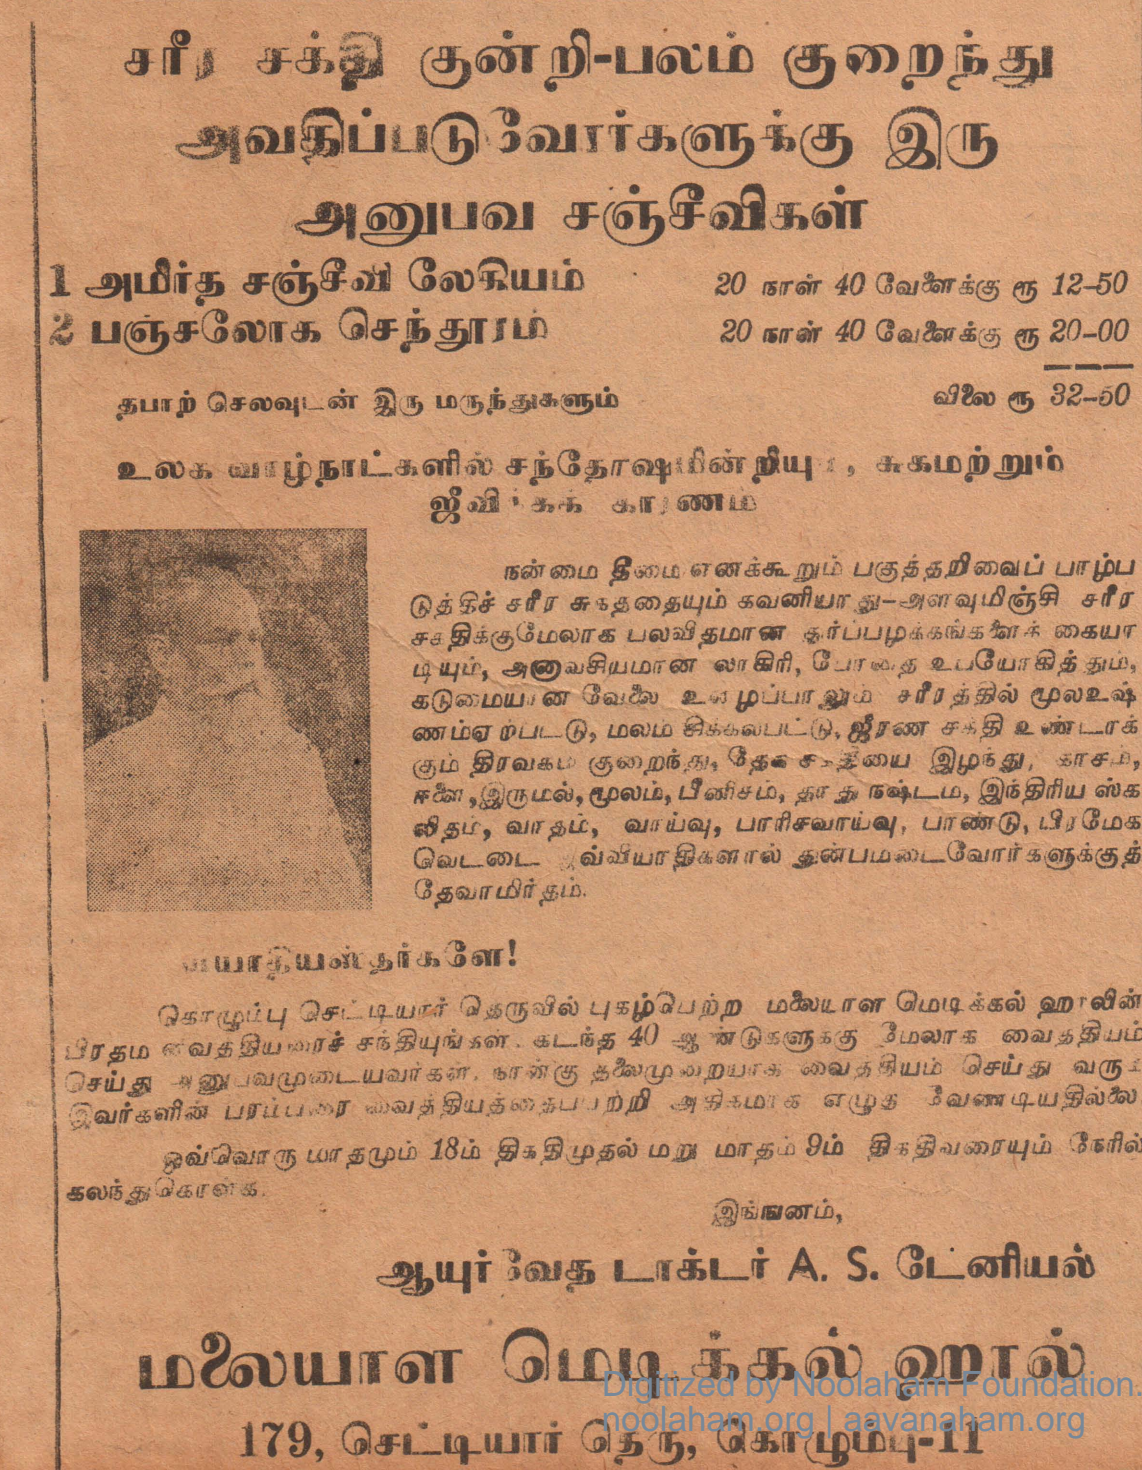 சரீர சக்தி குன்றி-பலம் குறைந்து
அவதிப்படுவோர்களுக்கு இரு
அனுபவ சஞ்சீவிகள்
1 அமிர்த சஞ்சீவி லேகியம் 20 நாள் 40 வேளைக்கு ரூ 12-50
2 பஞ்சலோக செந்தூரம் 20 நாள் 40 வேளைக்கு ரூ 20-00
தபாற் செலவுடன் இரு மருந்துகளும் விலை ரூ 32-50
உலக வாழ்நாட்களில் சந்தோஷமின்றியும், சுகமற்றும்
ஜீவிக்கக் காரணம்
நன்மை தீமை எனக்கூறும் பகுத்தறிவைப் பாழ்ப
டுத்திச் சரீர சுகத்தையும் கவனியாது-அளவுமிஞ்சி சரீர
சக்திக்குமேலாக பலவிதமான துர்ப்பழக்கங்களைக் கையா
டியும், அனாவசியமான லாகிரி, போதை உபயோகித்தும்,
கடுமையான வேலை உழைப்பாலும் சரீரத்தில் மூலஉஷ்
ணம்ஏற்பட்டு, மலம் சிக்கலபட்டு, ஜீரண சக்தி உண்டாக்
கும் திரவகம் குறைந்து, தேக சக்தியை இழந்து, காசம்,
ஈளை, இருமல், மூலம், பீனிசம், தாது நஷ்டம், இந்திரிய ஸ்க
லிதம், வாதம், வாய்வு, பாரிசவாய்வு, பாண்டு, பிரமேக
வெட்டை இவ்வியாதிகளால் துன்பமடைவோர்களுக்குத்
தேவாமிர்தம்.
வியாதியஸ்தர்களே!
கொழும்பு செட்டியார் தெருவில் புகழ்பெற்ற மலையாள மெடிக்கல் ஹாலின்
பிரதம வைத்தியரைச் சந்தியுங்கள். கடந்த 40 ஆண்டுகளுக்கு மேலாக வைத்தியம்
செய்து அனுபவமுடையவர்கள். நான்கு தலைமுறையாக வைத்தியம் செய்து வரும்
இவர்களின் பரம்பரை வைத்தியத்தைப்பற்றி அதிகமாக எழுத வேண்டியதில்லை
ஒவ்வொரு மாதமும் 18ம் திகதிமுதல் மறு மாதம் 9ம் திகதிவரையும் நேரில்
கலந்துகொள்க.
இங்ஙனம்,
ஆயுர்வேத டாக்டர் A. S. டேனியல்
மலையாள மெடிக்கல் ஹால்
179, செட்டியார் தெரு, கொழும்பு-11
Digitized by Noolaham Foundation.
noolaham.org | aavanaham.org